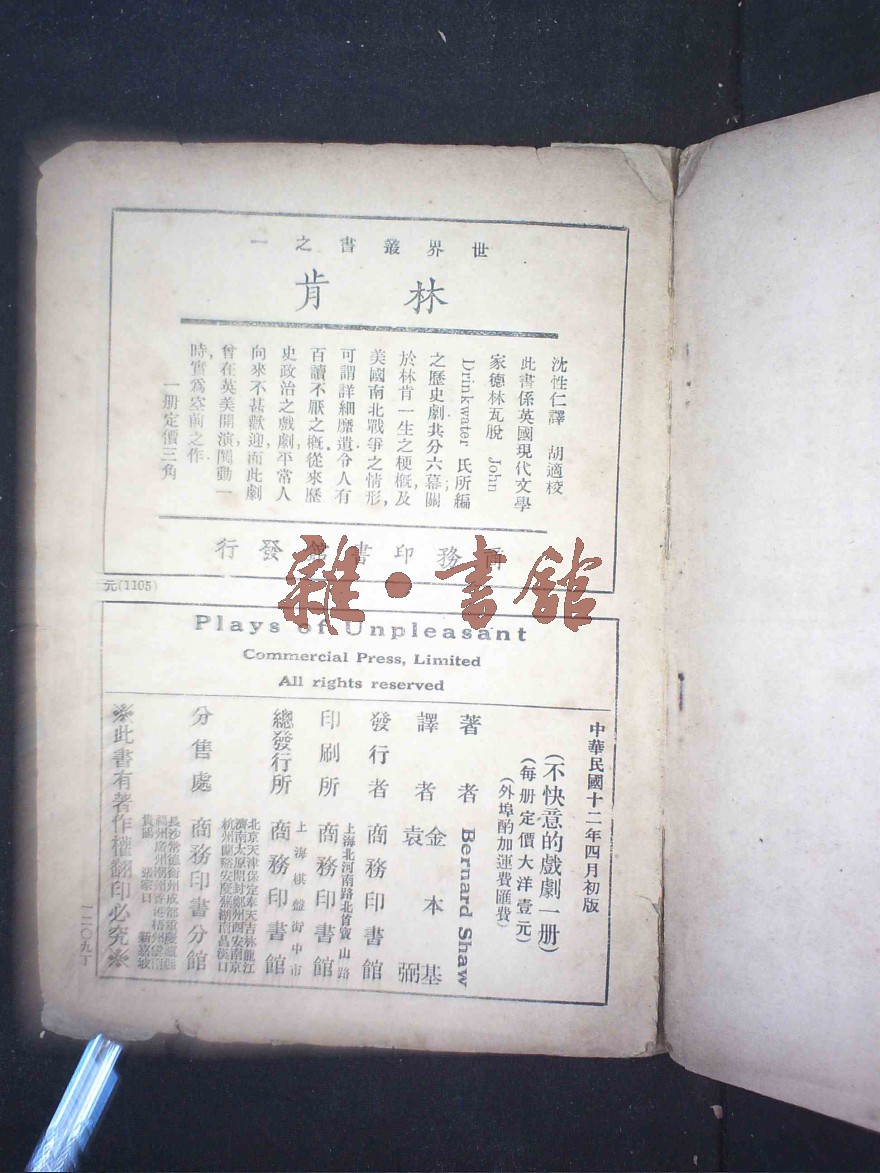 世界叢書之一
林肯
沈性仁譯 胡適校
此書係英國現代文學
家德林瓦脫 John
Drinkwater 氏所編
之歷史劇共分六幕關
於林肯一生之梗概,及
美國南北戰爭之情形,
可謂詳細靡遺令人有
百讀不厭之概.從來歷
史政治之戲劇,平常人
向來不甚歡迎,而此劇
曾在英美開演,鬨動一
時,實爲空前之作.
一册定價三角
商務印書館發行
雜·書館
元(1105)
Plays of Unpleasant
Commercial Press, Limited
All rights reserved
中華民國十二年四月初版
(不快意的戲劇一册)
(每册定價大洋壹元)
(外埠酌加運費匯費)
著者 Bernard Shaw
譯者 金本基 袁弼
發行者 商務印書館
印刷所 上海北河南路北首寶山路 商務印書館
總發行所 上海棋盤街中市 商務印書館
分售處 商務印書分館
北京天津保定奉天吉林龍江
濟南太原開封鄭州西安南京
杭州蘭谿安慶蕪湖南昌漢口
長沙常德衡州成都重慶瀘縣
福州廣州潮州香港梧州雲南
貴陽 張家口 新嘉坡
※此書有著作權翻印必究※
一二〇九丁